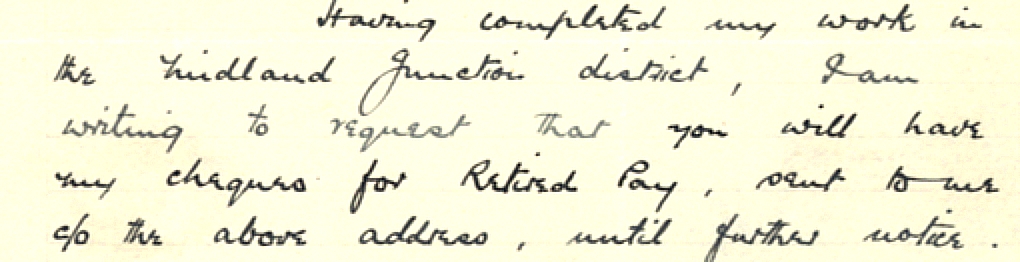 Having completed my work in
the Midland Junction district, I am
writing to request that you will have
my cheques for Retired Pay, sent to me
c/o the above address, until further notice.